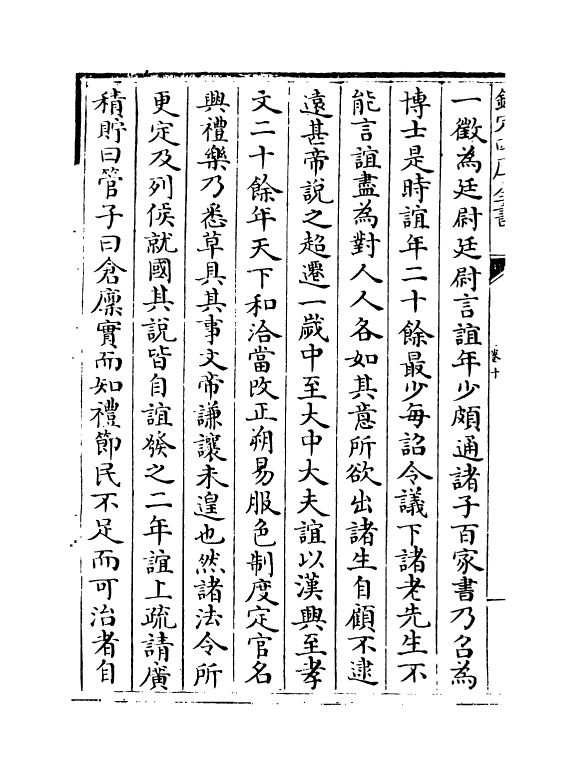 欽定四庫全書
卷十
一徵為廷尉廷尉言誼年少頗通諸子百家書乃召為
博士是時誼年二十餘最少每詔令議下諸老先生不
能言誼盡為對人人各如其意所欲出諸生自顧不逮
遠甚帝說之超遷一歲中至大中大夫誼以漢興至孝
文二十餘年天下和洽當改正朔易服色制度定官名
興禮樂乃悉草具其事文帝謙讓未遑也然諸法令所
更定及列侯就國其說皆自誼發之二年誼上疏請廣
積貯曰管子曰倉廩實而知禮節民不足而可治者自